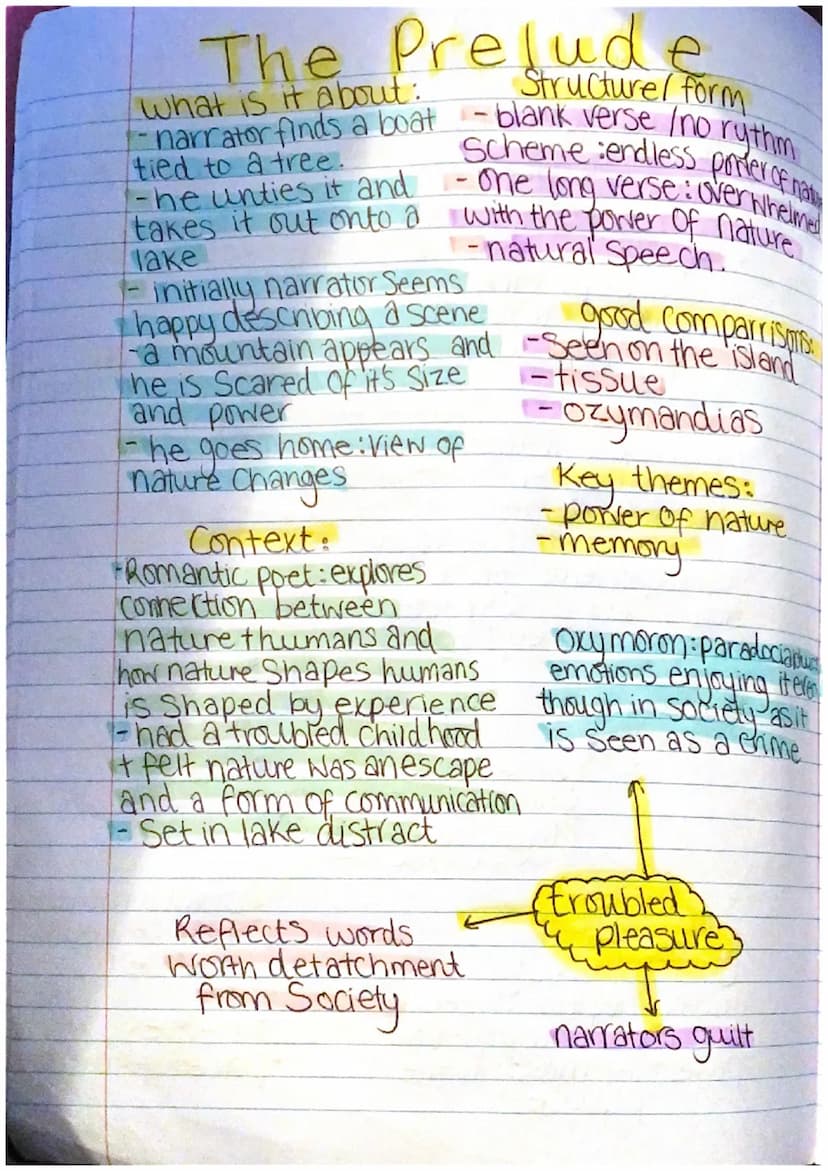 The Prelude
What is it about:
- narrator finds a boat
tied to a tree.
- he unties it and
takes it out onto a
lake
- initially narrator seems
happy describing a scene
- a mountain appears and
he is scared of it's size
and power
- he goes home: view of
nature changes
Context:
- Romantic poet: explores
connection between
nature + humans and
how nature shapes humans
is shaped by experience
- had a troubled childhood
+ felt nature was an escape
and a form of communication
- Set in lake distract
Reflects words
worth detatchment
from Society
Structure/form
- blank verse /no rythm
scheme: endless power of
- one long verse: overwhelmed
with the power of nature
- natural speech.
good comparrisons:
- Seen on the island
- tissue
- ozymandias
Key themes:
- power of nature
- memory
Oxymoron:
emotions enjoying it even
though in society as it
is seen as a crime
troubled
pleasure
narrators guilt